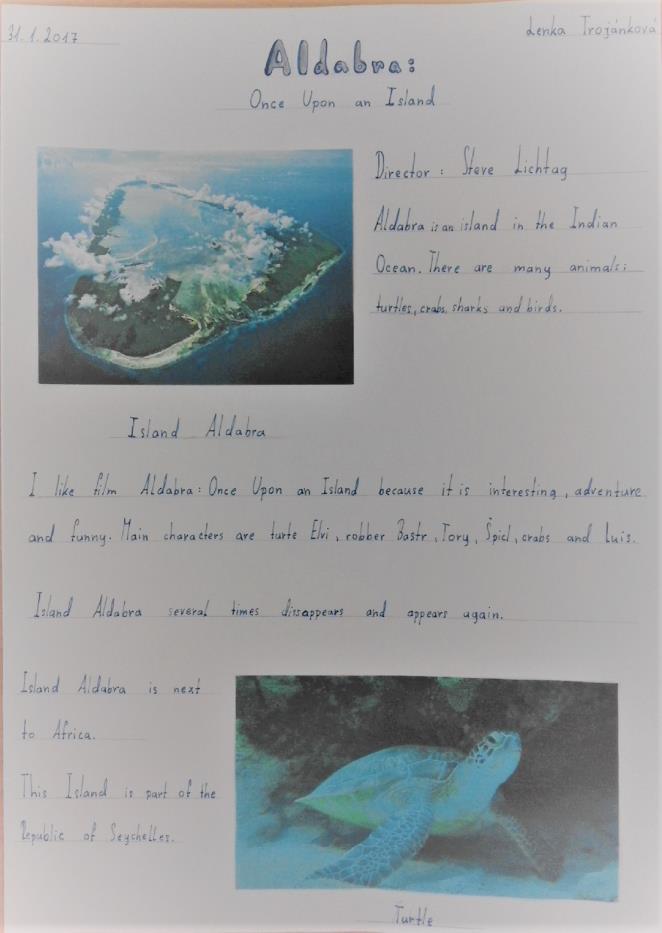 31.1.2017
Lenka Trojánková
Aldabra:
Once Upon an Island
Director: Steve Lichtag
Aldabra is an island in the Indian
Ocean. There are many animals:
turtles, crabs, sharks and birds.
Island Aldabra
I like film Aldabra: Once Upon an Island because it is interesting, adventure
and funny. Main characters are turte Elvi, robber Bastr, Tory, Špicl, crabs and Luis.
Island Aldabra several times dissappears and appears again.
Island Aldabra is next
to Africa.
This Island is part of the
Republic of Seychelles.
Turtle